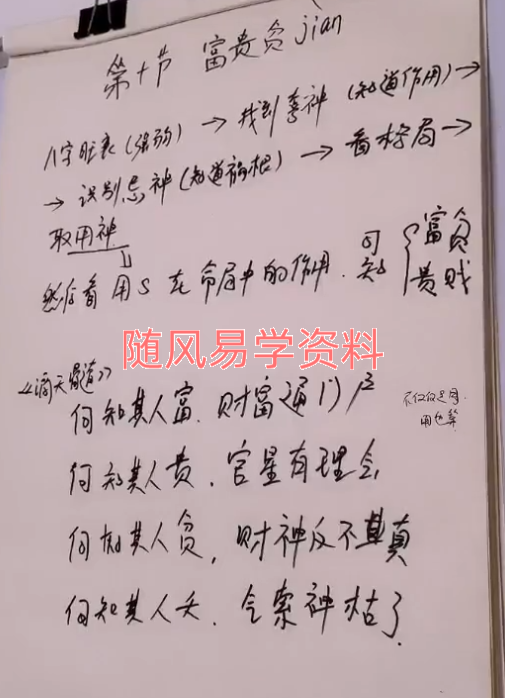 第十节 富贵贫jian
八字旺衰(强弱) → 找到喜神 (知道作用) →
→ 识别忌神 (知道病根) → 看格局 →
取用神
然后看用S在命局中的作用. 可知 { 富贫
贵贱
随风易学资料
《滴天髓道》
何知其人富. 财富通门户
何知其人贵. 官星有理会
何知其人贫, 财神反不真
何知其人夭. 气索神枯了.